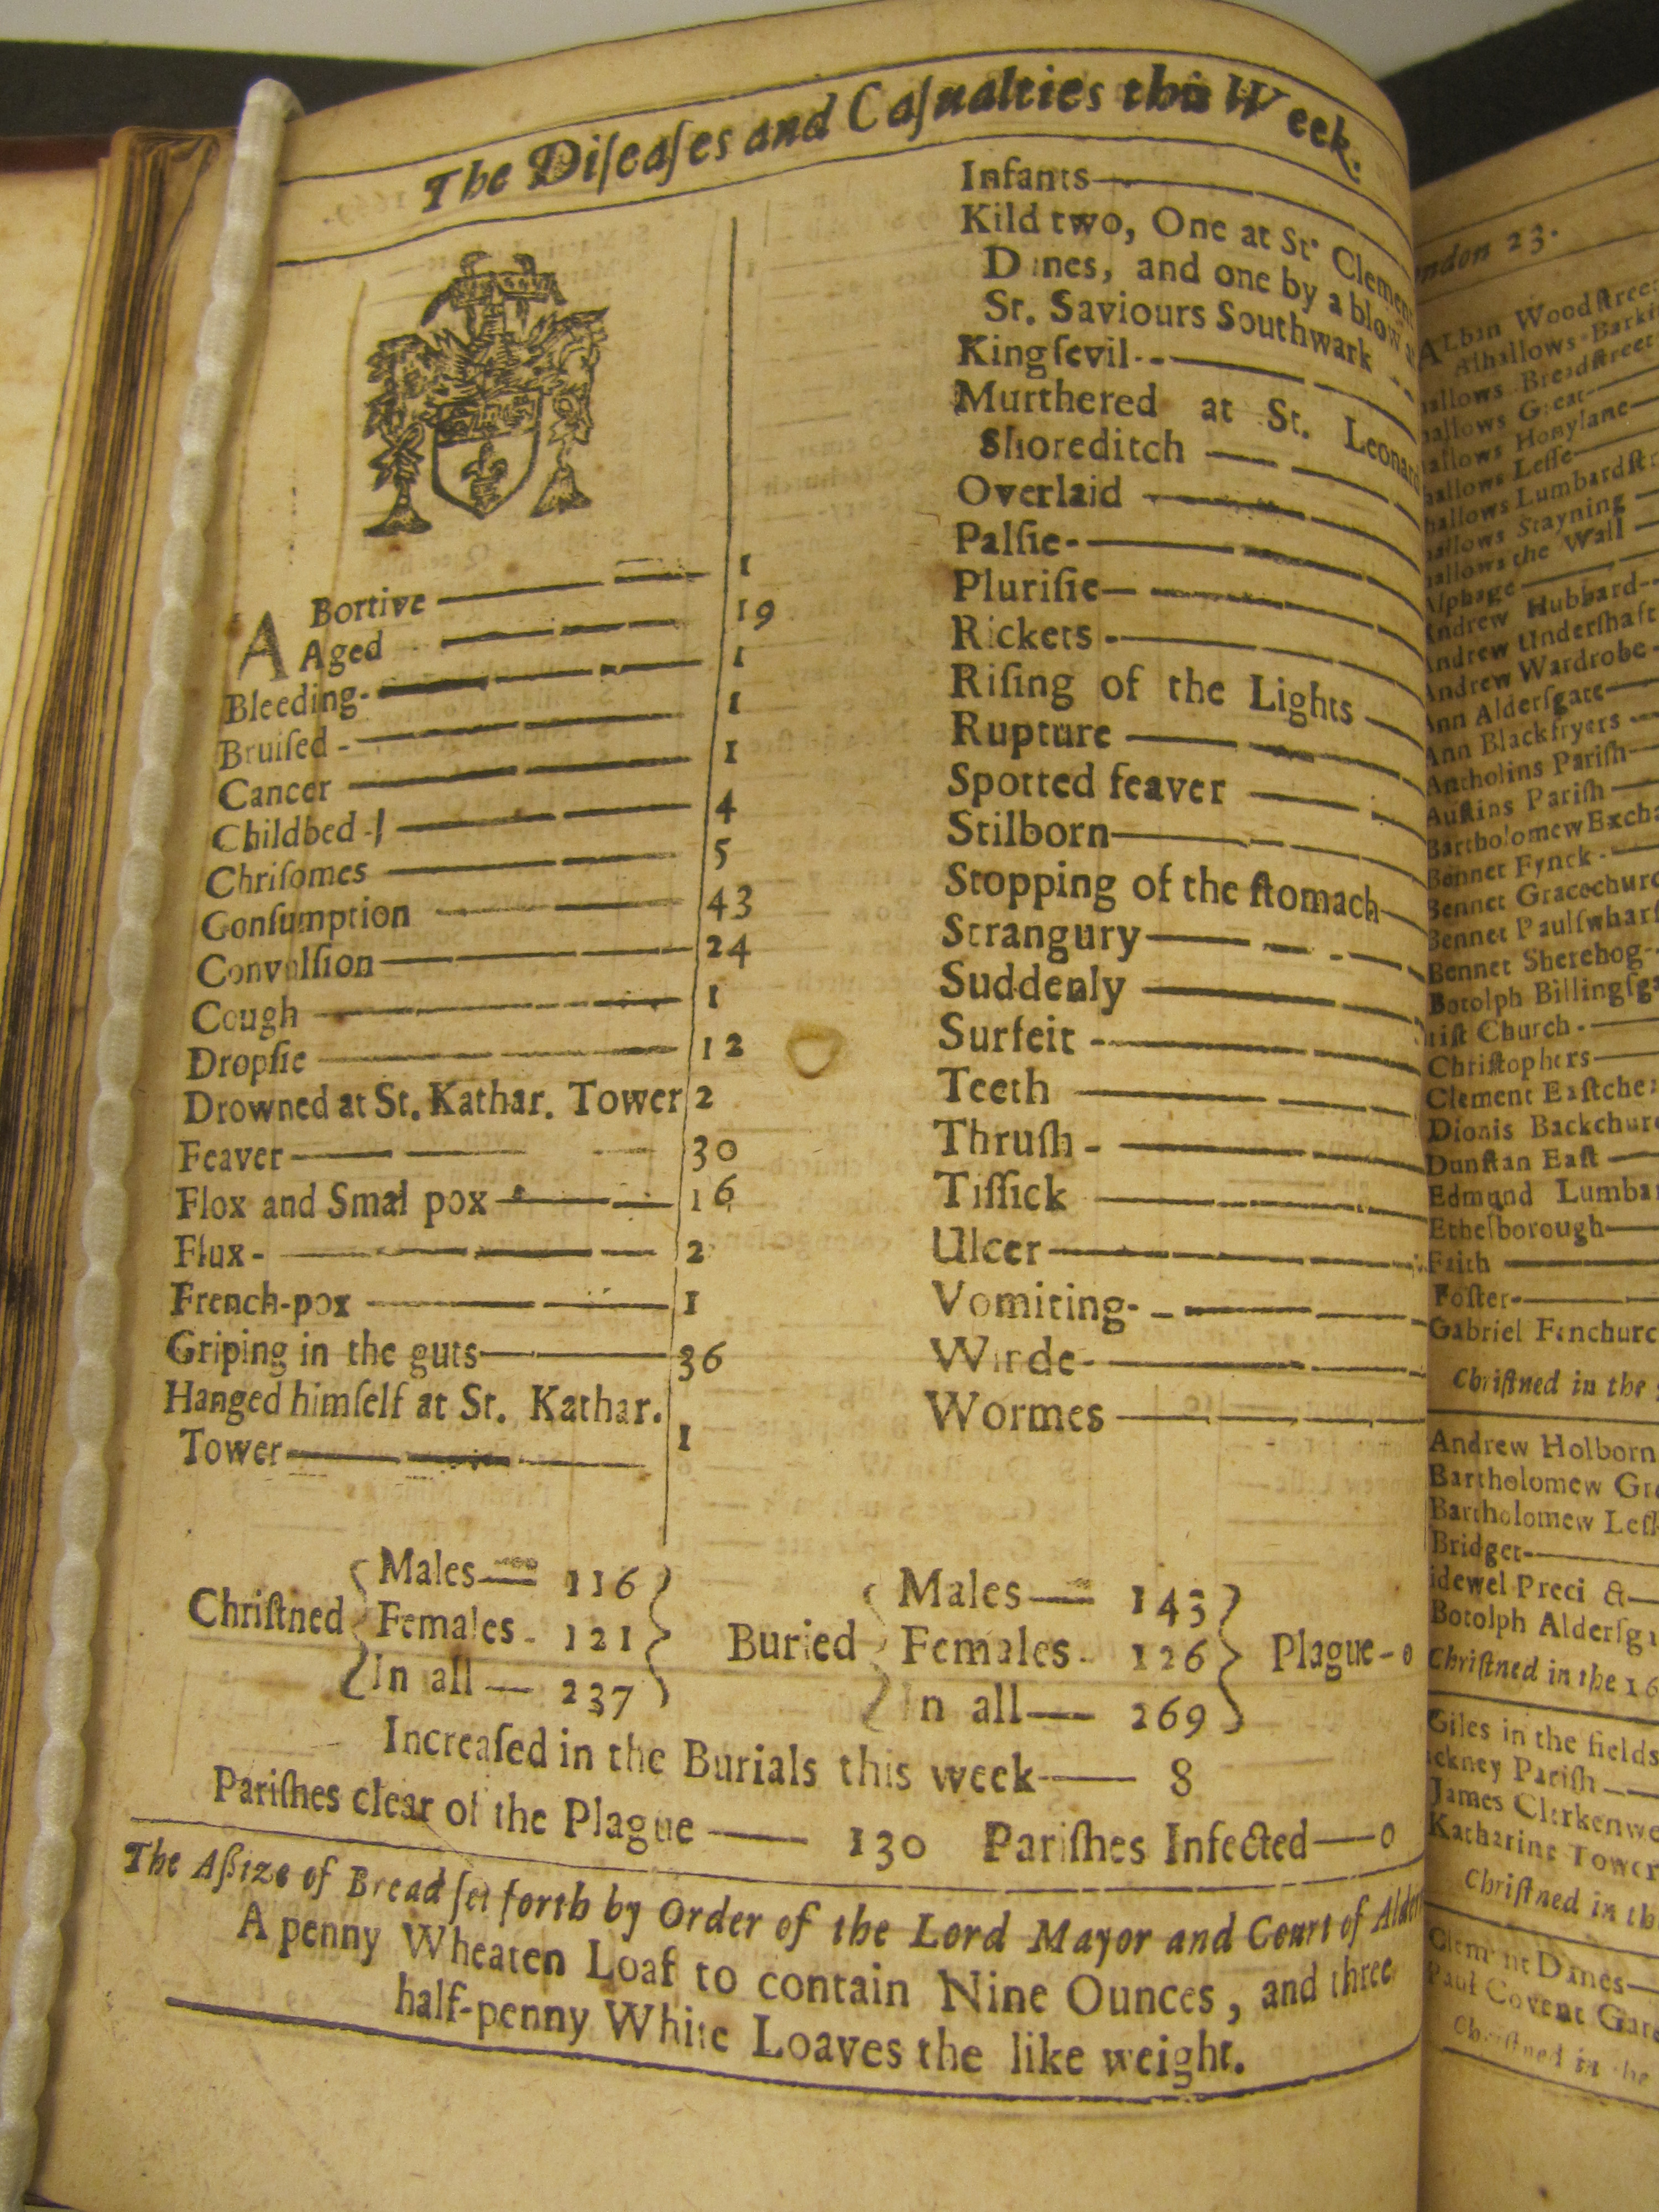 The Diſeaſes and Caſualties this Week.
ABortive 1
Aged 19
Bleeding 1
Bruiſed 1
Cancer 1
Childbed 4
Chriſomes 5
Conſumption 43
Convulſion 24
Cough 1
Dropſie 12
Drowned at St. Kathar. Tower 2
Feaver 30
Flox and Smal pox 16
Flux 2
French-pox 1
Griping in the guts 36
Hanged himſelf at St. Kathar.
Tower 1
Infants
Kild two, One at St. Clement
Danes, and one by a blow at
St. Saviours Southwark
Kingſevil
Murthered at St. Leonard
Shoreditch
Overlaid
Palſie
Pluriſie
Rickets
Riſing of the Lights
Rupture
Spotted feaver
Stilborn
Stopping of the ſtomach
Strangury
Suddenly
Surfeit
Teeth
Thruſh
Tiſſick
Ulcer
Vomiting
Winde
Wormes
Chriſtned
Males 116
Females 121
In all 237
Buried
Males 143
Females 126
In all 269
Plague 0
Increaſed in the Burials this week 8
Pariſhes clear of the Plague 130 Pariſhes Infected 0
The Aſsize of Bread ſet forth by Order of the Lord Mayor and Court of Alder
A penny Wheaten Loaf to contain Nine Ounces, and three
half-penny White Loaves the like weight.
ndon 23.
ALban Woodſtreet
Alhallows Barki
allows Breadſtreet
hallows Great
allows Honylane
hallows Leſſe
hallows Lumbardſtr
hallows Stayning
hallows the Wall
Alphage
Andrew Hubbard
Andrew Underſhaft
Andrew Wardrobe
Ann Alderſgate
Ann Blackfryers
Antholins Pariſh
Auſtins Pariſh
Bartholomew Excha
Bennet Fynck
Bennet Gracechurc
Bennet Paulſwharf
Bennet Sherehog
Botolph Billingſga
riſt Church
Chriſtophers
Clement Eaſtchea
Dionis Backchurc
Dunſtan Eaſt
Edmund Lumba
Ethelborough
Faith
Foſter
Gabriel Fenchurc
Chriſtned in the
Andrew Holborn
Bartholomew Gre
Bartholomew Leſſ
Bridget
idewel Preci &
Botolph Alderſga
Chriſtned in the 16
Giles in the fields
ackney Pariſh
James Clerkenwe
Katharine Tower
Chriſtned in th
Clement Danes
Paul Covent Gard
Chriſtned in the